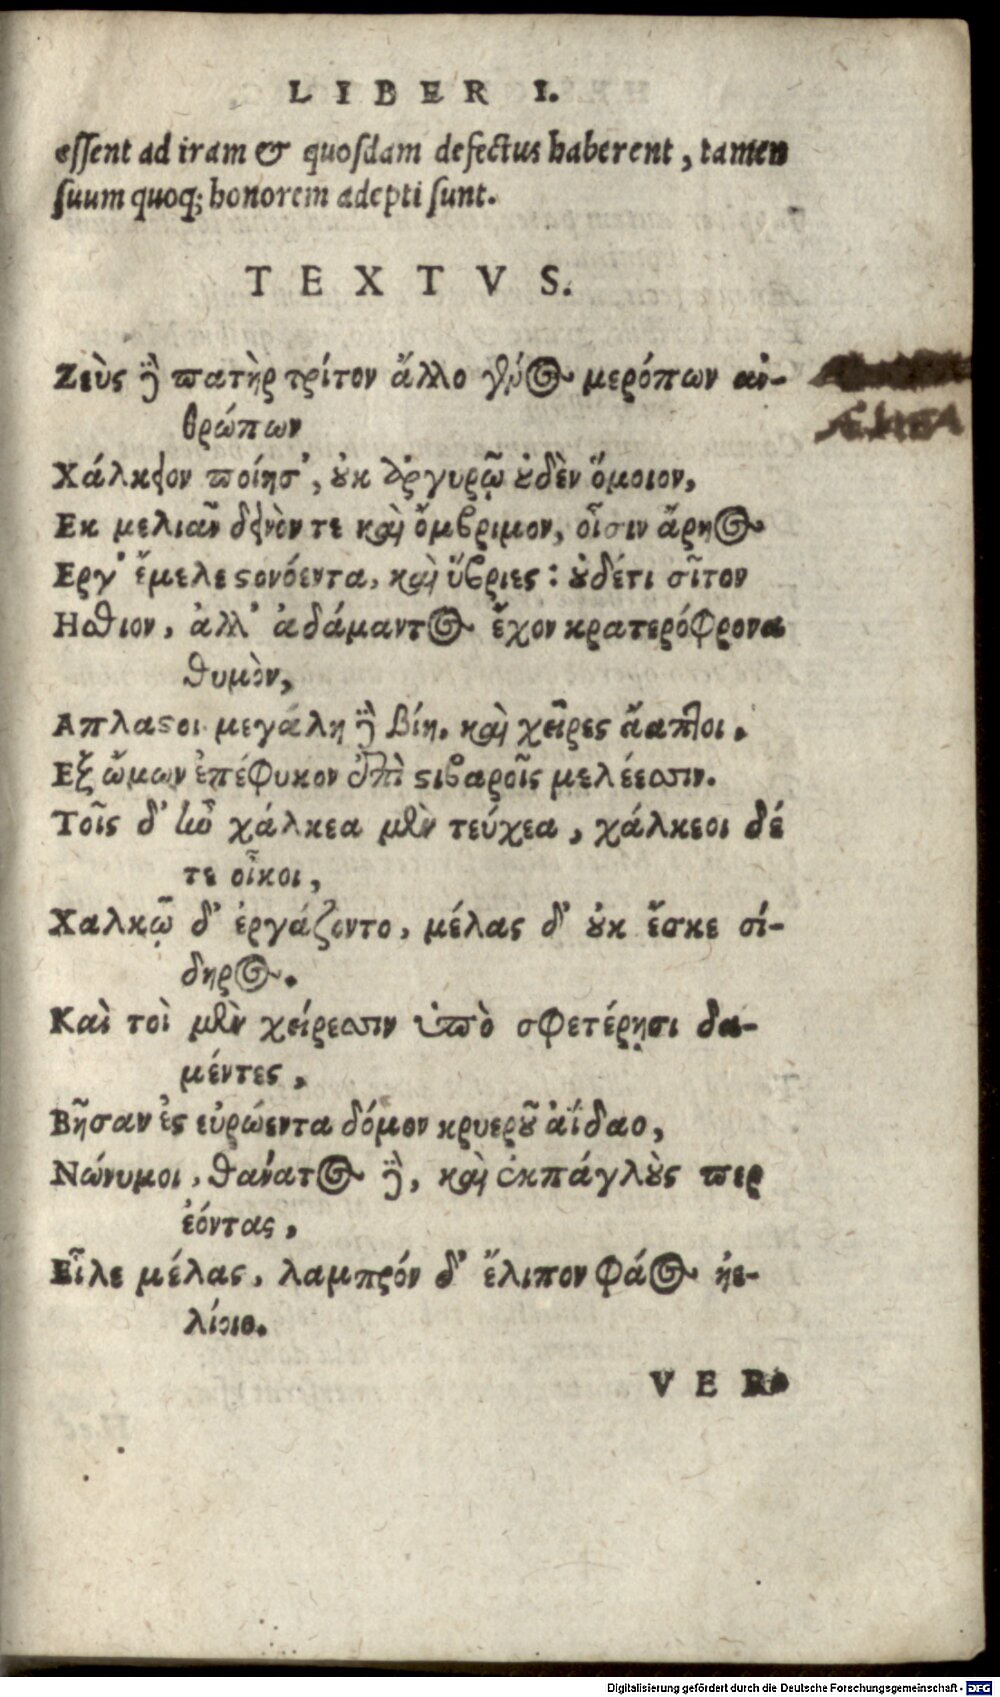 LIBER I.
essent ad iram & quosdam defectus haberent, tamen
suum quoq; honorem adepti sunt.
TEXTVS.
Ζεὺς δὲ πατὴρ τρίτον ἄλλο γένος μερόπων ἀν-
θρώπων
Χάλκειον ποίησ', οὐκ ἀργυρῷ οὐδὲν ὅμοιον,
Εκ μελιᾶν δεινὸν τε καὶ ὄμβριμον, οἷσιν ἄρηος
Εργ' ἔμελε στονόεντα, καὶ ὕβριες: οὐδέτι σῖτον
Ησθιον, ἀλλ' ἀδάμαντος ἔχον κρατερόφρονα
θυμὸν,
Απλαστοι μεγάλη δὲ βίη, καὶ χεῖρες ἄαπτοι,
Εξ ὤμων ἐπέφυκον ἐπὶ στιβαροῖς μελέεσσιν.
Τοῖς δ' ἦν χάλκεα μὲν τεύχεα, χάλκεοι δέ
τε οἶκοι,
Χαλκῷ δ' ἐργάζοντο, μέλας δ' οὐκ ἔσκε σί-
δηρος.
Καὶ τοὶ μὲν χείρεσσιν ὑπὸ σφετέρῃσι δα-
μέντες,
Βῆσαν ἐς εὐρώεντα δόμον κρυεροῦ ἀΐδαο,
Νώνυμοι, θάνατος δὲ, καὶ ἐκπάγλους περ
ἐόντας,
Εἷλε μέλας, λαμπρόν δ' ἔλιπον φάος ἠε-
λίοιο.
VER
Digitalisierung gefördert durch die Deutsche Forschungsgemeinschaft - DFG